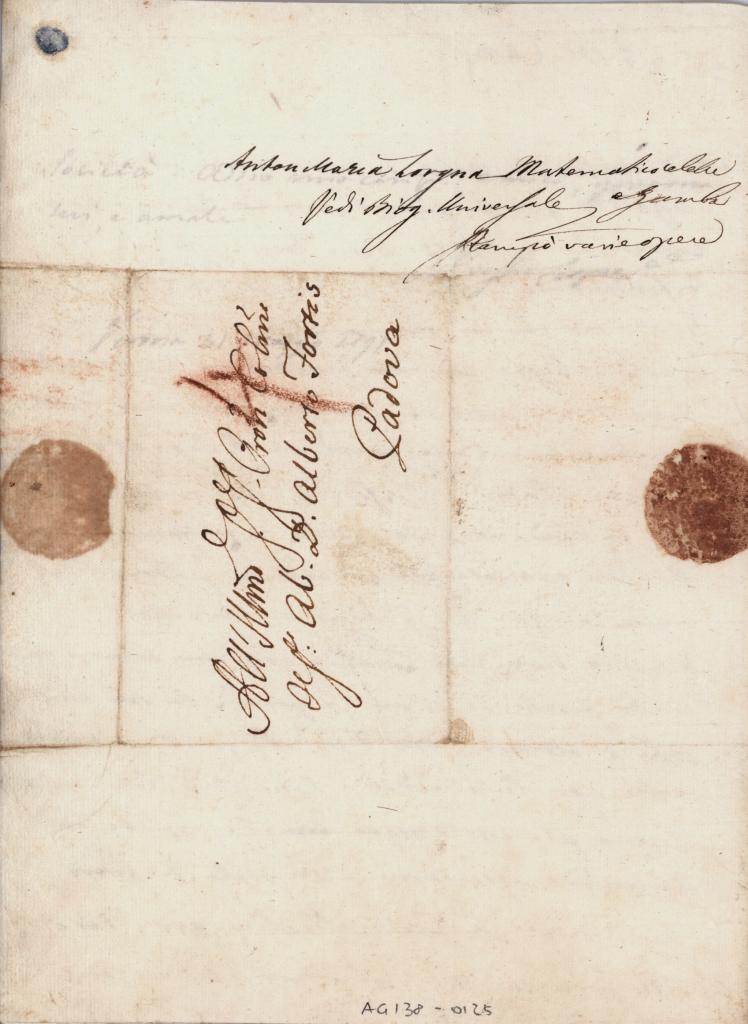 Anton Maria Lorgna Matematico celebre
Vedi Biog. Universale e Gamba
Stampò varie opere
All' Illmo Sigr Pron Colmo
Il Sigr: Ab. D. Alberto Fortis
Padova
AG138 - 0125